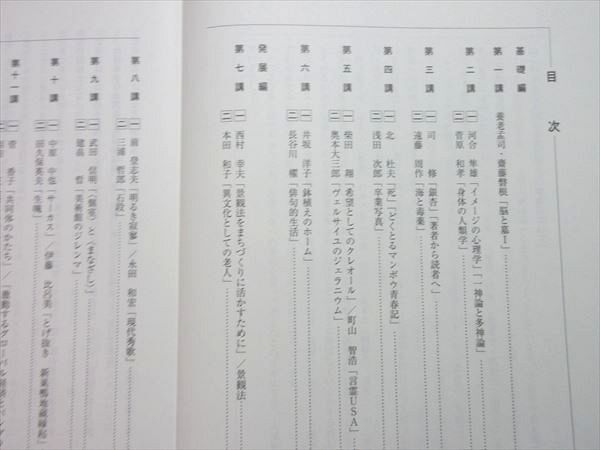 目次
基礎編
第一講
養老孟司・齋藤磐根「脳と墓Ⅰ」
第二講
一 河合 隼雄「イメージの心理学」「一神論と多神論」
二 菅原 和孝「身体の人類学」
第三講
一 司 修「銀杏」「著者から読者へ」
二 遠藤 周作「海と毒薬」
第四講
一 北 杜夫「死」「どくとるマンボウ青春記」
二 浅田 次郎「卒業写真」
第五講
一 柴田 翔「希望としてのクレオール」/町山 智浩「言霊USA」
二 奥本大三郎「ヴェルサイユのジェラニウム」
第六講
一 井坂 洋子「鉢植えのホーム」
二 長谷川 櫂「俳句的生活」
発展編
第七講
一 西村 幸夫「景観法をまちづくりに活かすために」/景観法
二 本田 和子「異文化としての老人」
第八講
一 前 登志夫「明るき寂寥」/永田 和宏「現代秀歌」
二 三浦 哲郎「石段」
第九講
一 武田 信明「〈個室〉と〈まなざし〉」
二 建畠 晢「美術館のジレンマ」
第十講
一 中原 中也「サーカス」/伊藤 比呂美「とげ抜き 新巣鴨地蔵縁起」
二 田久保英夫「生魄」
第十一講
一 菅 香子「共同体のかたち」/「激動するグローバル経済とバング